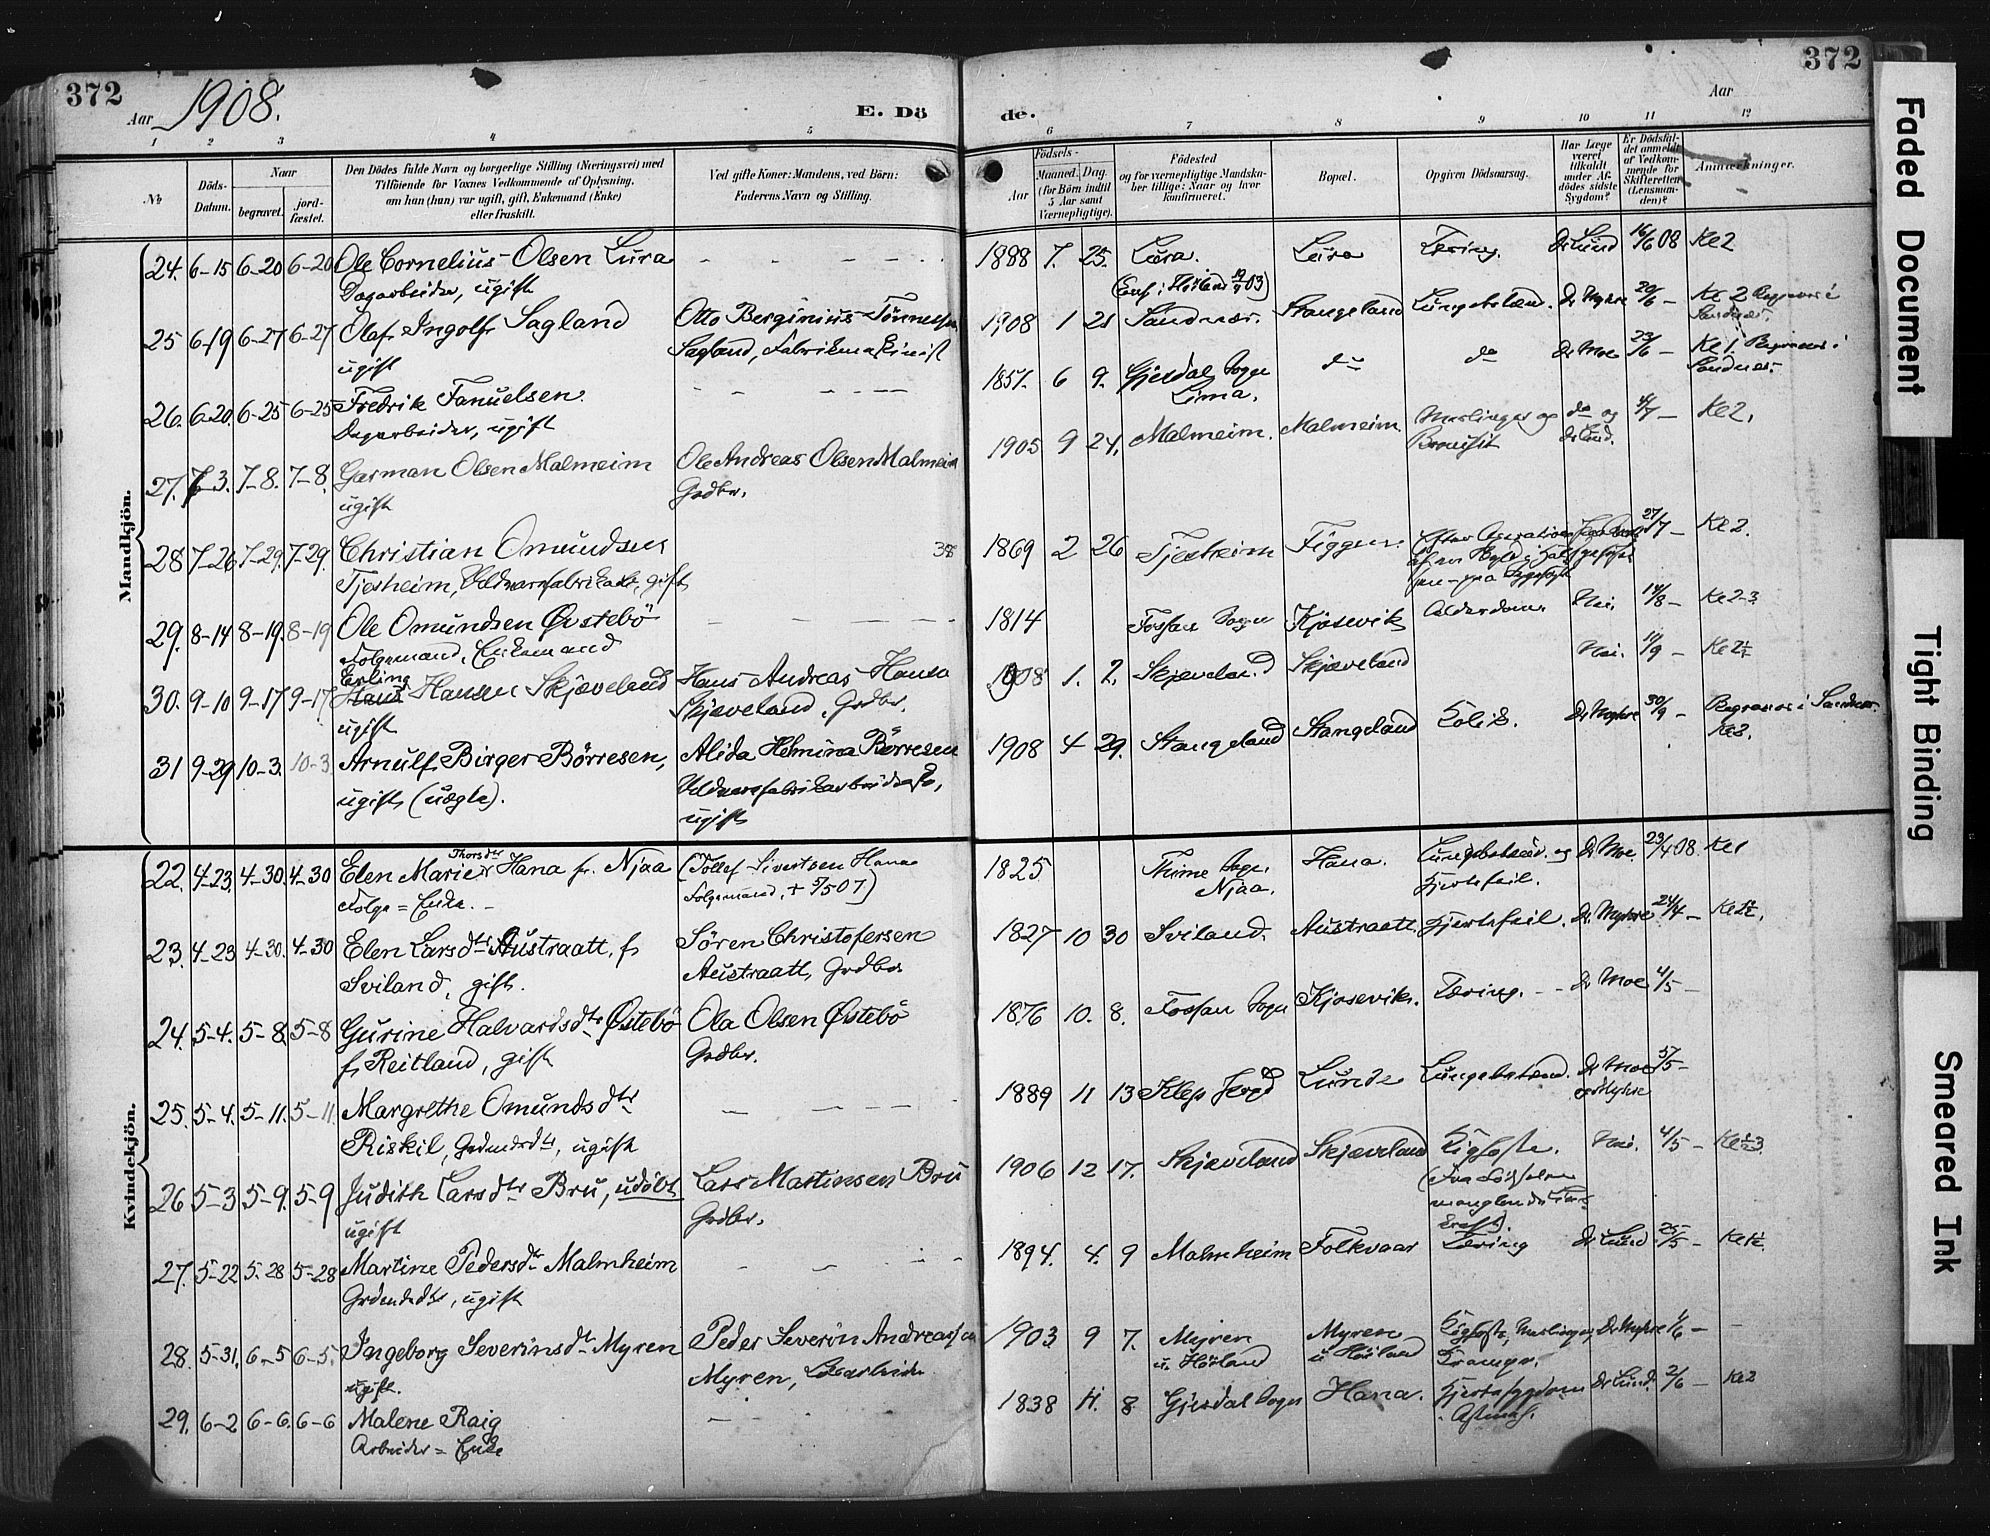 372
Aar 1908.
E. Dö
de.
Aar
372
1 2 3 4 5 6 7 8 9 10 11 12
№
Döds-
Datum.
Naar
begravet.
jord-
fæstet.
Den Dödes fulde Navn og borgerlige Stilling (Næringsvei) med
Tilföiende for Voxnes Vedkommende af Oplysning,
om han (hun) var ugift, gift, Enkemand (Enke)
eller fraskilt.
Ved gifte Koner: Mandens, ved Börn:
Faderens Navn og Stilling.
Födsels-
Aar
Maaned. Dag.
(for Börn indtil
5 Aar samt
Værnepligtige).
Födested
og for værnepligtige Mandska-
ber tillige: Naar og hvor
konfirmeret.
Bopæl.
Opgiven Dödsaarsag.
Har Læge
været
tilkaldt
under Af-
dödes sidste
Sygdom?
Er Dödsfal-
det anmeldt
af Vedkom-
mende for
Skifteretten
(Lensman-
den)?
Anmærkninger.
Mandkjön.
24. 6-15 6-20 6-20 Ole Cornelius Olsen Lura - - - - 1888 7. 25. Lura. Lura Tæring. Dr Lund 16/6 08 Kl 2
Dagarbeider, ugift
(Conf. i Höiland 03)
25 6-19 6-27 6-27 Olaf Ingolf Sagland Otto Berginius Tönnessen 1908 1 21 Sandnæs. Stangeland Lungebetænd. Dr Myhre 20/6 - Kl 2 Begraves i
ugift Sagland, Fabrikmaskinist Sandnæs.
26. 6-20. 6-25 6-25 Fredrik Fanuelsen. - - - - 1851. 6 9. Gjesdal Sogn do do Dr Moe 23/6 - Kl 1. Begraves i
Dagarbeider, ugift Lima. Sandnæs.
27. 7-3. 7-8. 7-8. Garman Olsen Malmeim Ole Andreas Olsen Malmeim 1905 9 24. Malmeim. Malmeim. Meslinger og do og 4/7 - Kl 2.
ugift Grdbr. Bronchit Dr Lund.
28 7-26 7-29. 7-29. Christian Omundsen 38 1869 2 26 Tjesheim Figgen. Efter Operation 27/7 - Kl 2.
Tjesheim, Uldvarefabrikarb., gift
29. 8-14 8-19. 8-19 Ole Omundsen Østebö - - - - 1814 Fossan Sogn Kjosevik Alderdom. Nei. 14/8 - Kl 2-3
Folgemand, Enkemand
30. 9-10 9-17 9-17 Erling Hans Hansen Skjæveland Hans Andreas Hansen 1908 1. 2. Skjæveland Skjæveland Nei. /9 - Kl 2½
ugift Skjæveland, Grdbr.
31 9-29 10-3. 10-3 Arnulf Birger Börresen, Alida Helmina Börresen 1908 4 29. Stangeland Stangeland Kolik. Dr Myhre 30/9 - Begraves i Sandnæs.
ugift, (uægte). Uldvarefabrikarbeiderske, Kl 2.
ugift
Kvindekjön.
22. 4-23. 4-30. 4-30 Elen Marie Thorsdtr Hana f. Njaa (Tollef Sivertsen Hana 1825 Thime Sogn. Hana. Lungebetænd. og Dr Moe. 23/4 08. Kl 1
Folge = Enke. - Folgemand, + 5/5 07) Njaa. Hjertefeil.
23. 4-23 4-30. 4-30 Elen Larsdtr Austraatt, f. Sören Christofersen 1827 10 30 Sviland. Austraatt. Hjertefeil. Dr Myhre 24/4 - Kl 1½.
Sviland, gift. Austraatt, Grdbr
24. 5-4. 5-8. 5-8 Gurine Halvardsdtr Østebö Ola Olsen Østebö 1876 10. 8. Fossan Sogn Kjosevik. Tæring. - - Dr Moe 4/5 -
f. Reitland, gift Grdbr.
25. 5-4. 5-11. 5-11. Margrethe Omundsdtr - - - - 1889 11 13 Klep Jered Lunde Lungebetænd. Dr Moe 5/5 -
Riskil, Grdmdsdtr, ugift og Myhre
26 5-3 5-9. 5-9 Judith Larsdtr Bru, udöbt Lars Martinsen Bru 1906 12 17. Skjæveland Skjæveland Kighoste. Nei. 4/5 - Kl 2-3.
ugift Grdbr. (Fra Födselen
manglende
kraft).
27. 5-22 5-28 5-28 Martine Pedersdtr Malmheim - - - - 1894. 4. 9 Malmheim Folkvaar Tæring Dr Lund 25/5 - Kl 1½
Grdmdsdtr, ugift
28. 5-31. 6-5 6-5. Ingeborg Severinsdtr Myren Peder Severin Andreassen 1903 9 7. Myren Myren Kighoste, Meslinger, Dr Myhre 1/6 - -
ugift. Myren, u. Höiland u Höiland Kramper.
29. 6-2 6-6. 6-6 Malene Raig - - 1838 11. 8 Gjesdal Sogn Hana. Hjertesygdom Dr Lund. 2/6 - Kl 2
Arbeider = Enke Astma.
Faded Document
Tight Binding
Smeared Ink